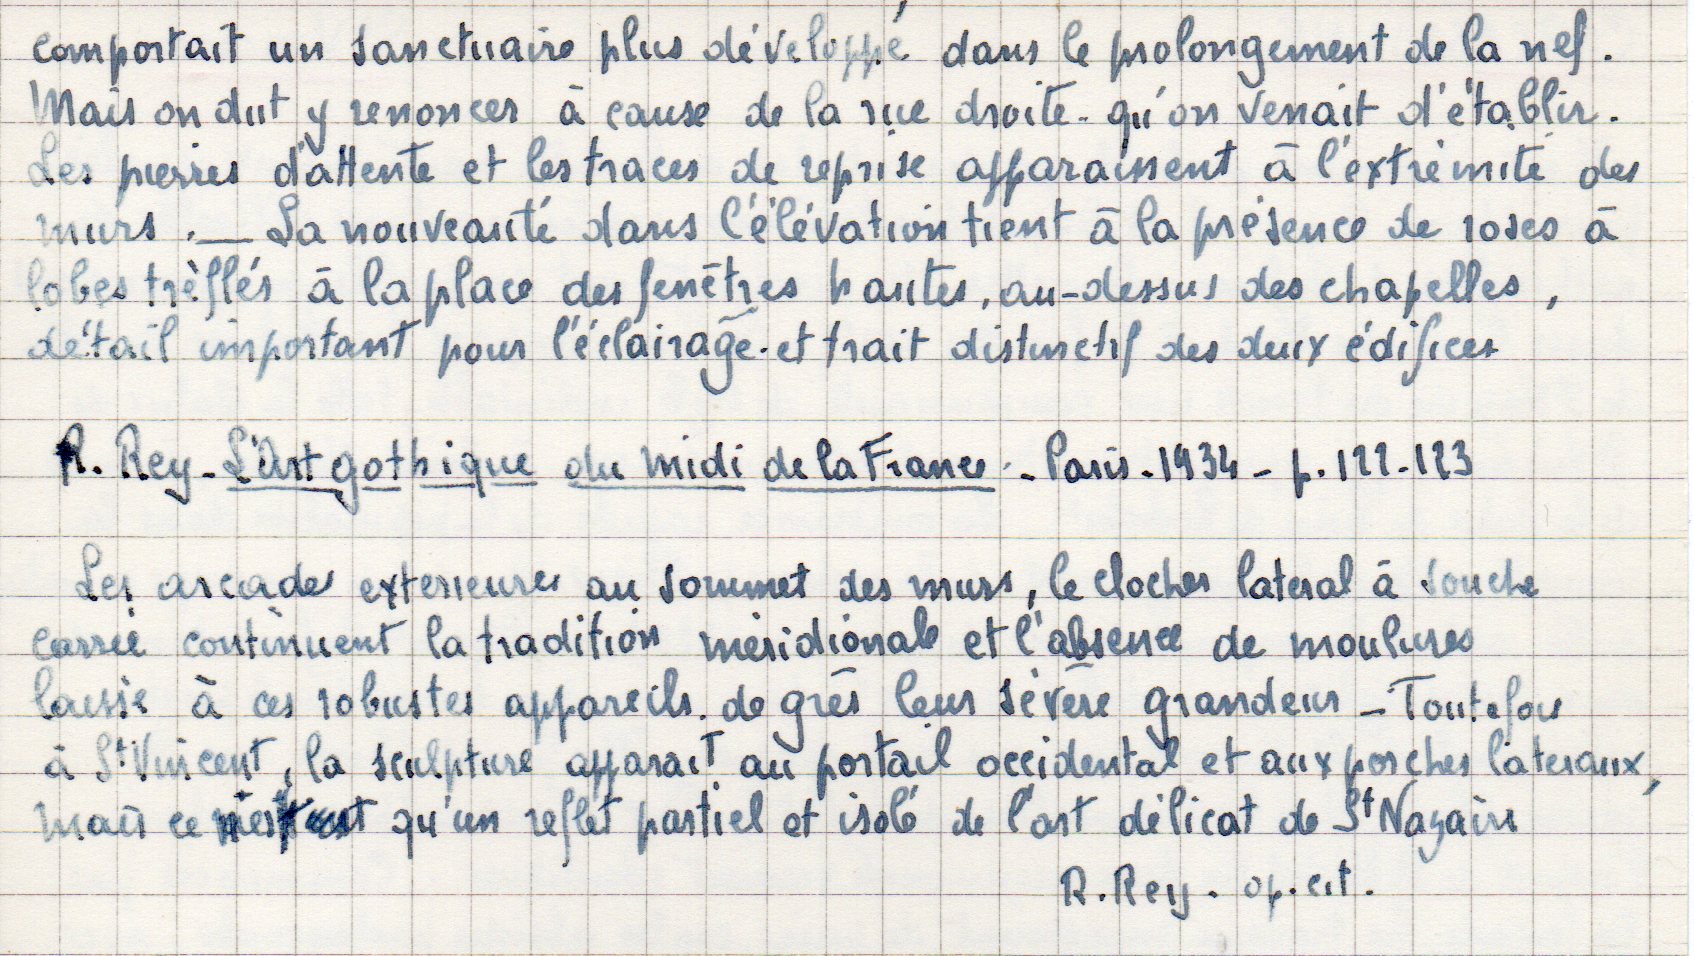 comportait un sanctuaire plus développé dans le prolongement de la nef.
Mais on dut y renoncer à cause de la rue droite qu'on venait d'établir.
Les pierres d'attente et les traces de reprise apparaissent à l'extrémité des
murs. — La nouveauté dans l'élévation tient à la présence de roses à
lobes tréflés à la place des fenêtres hautes, au-dessus des chapelles,
détail important pour l'éclairage et trait distinctif des deux édifices
R. Rey - L'Art gothique du midi de la France - Paris - 1934 - p. 122-123
Les arcades exterieures au sommet des murs, le clocher lateral à souche
carrée continuent la tradition méridionale et l'absence de moulures
laisse à ces robustes appareils de grès leur sévère grandeur - Toutefois
à St Vincent, la sculpture apparait au portail occidental et aux porches lateraux,
mais ce n'est qu'un reflet partiel et isolé de l'art délicat de St Nazaire
R. Rey. op. cit.